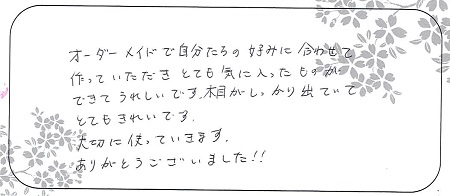 オーダーメイドで自分たちの好みに合わせて
作っていただきとても気に入ったものが
できてうれしいです。相がしっかり出ていて
とてもきれいです。
大切に使っていきます。
ありがとうございました!!